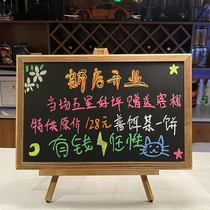 新店开业
当场五星好评 赠送容栈
特供原价128元普饵茶一饼
有钱任性